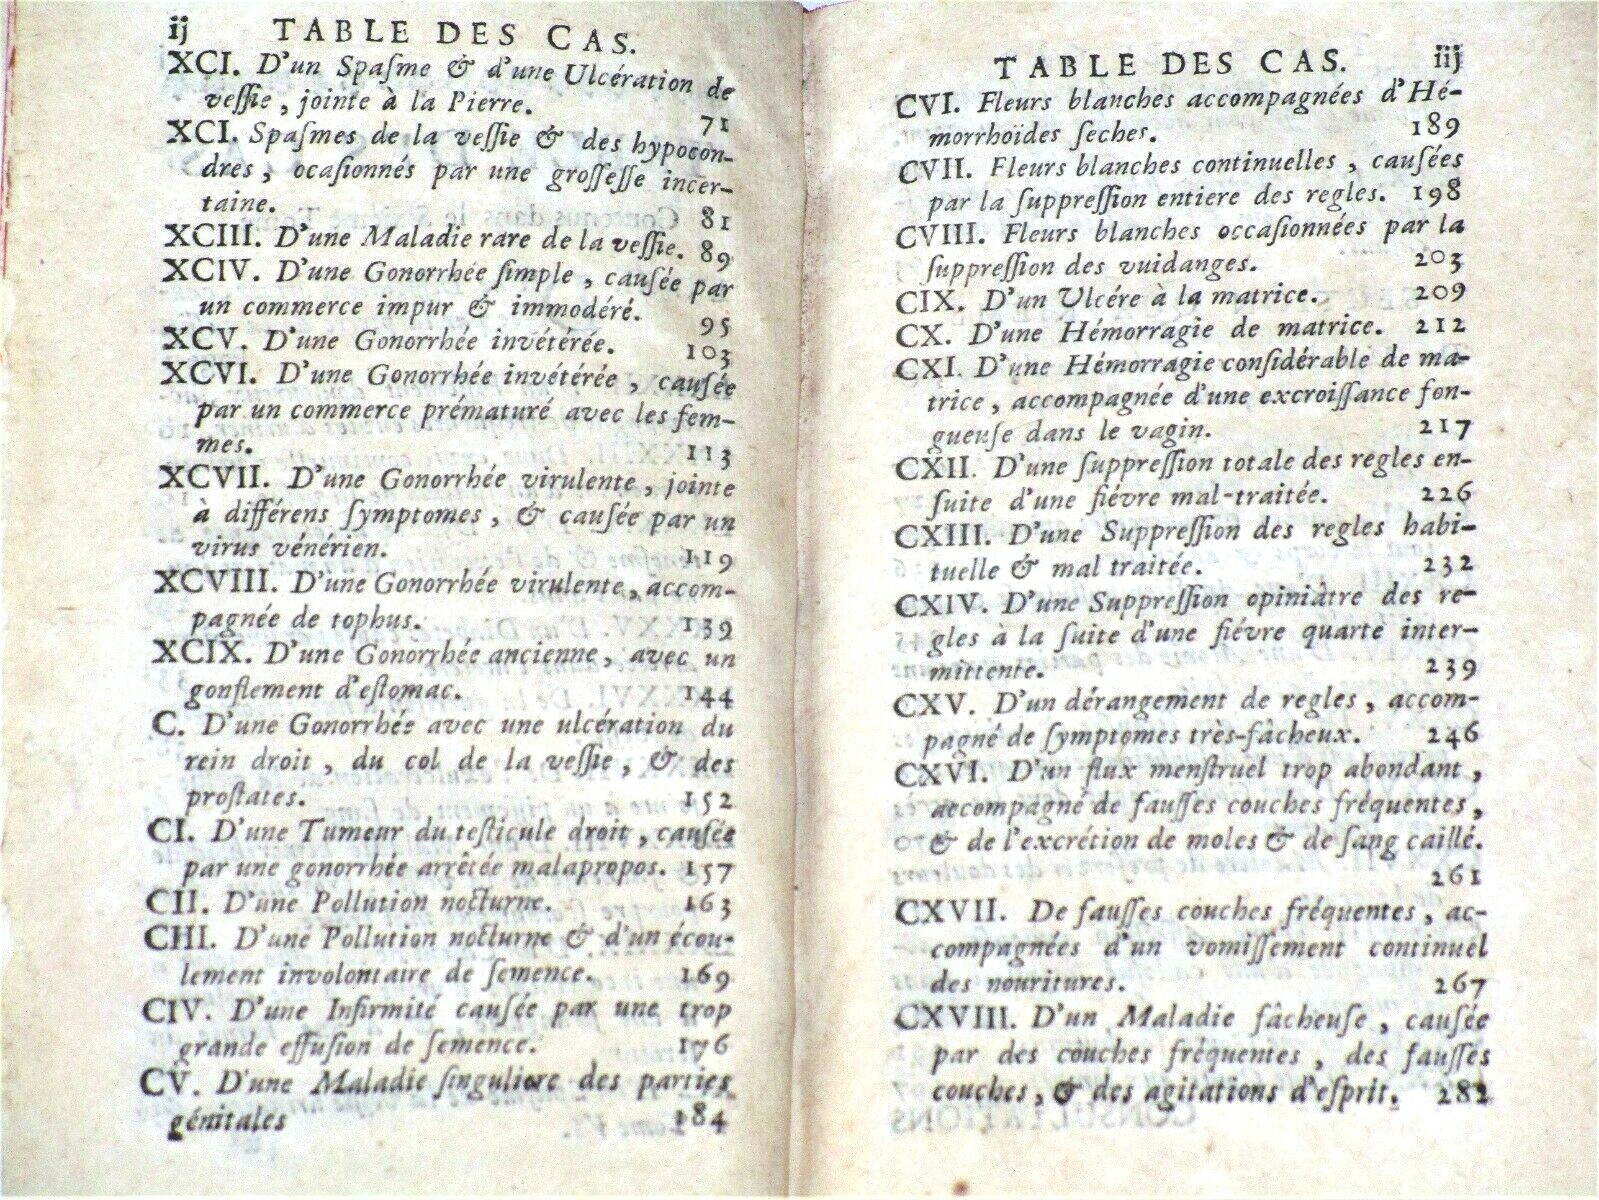 ij TABLE DES CAS.
XCI. D'un Spaſme & d'une Ulcération de
veſſie, jointe à la Pierre. 71
XCI. Spaſmes de la veſſie & des hypocon-
dres, ocaſionnés par une groſſeſſe incer-
taine. 81
XCIII. D'une Maladie rare de la veſſie. 89
XCIV. D'une Gonorrhée ſimple, cauſée par
un commerce impur & immodéré. 95
XCV. D'une Gonorrhée invétérée. 103
XCVI. D'une Gonorrhée invétérée, cauſée
par un commerce prématuré avec les fem-
mes. 113
XCVII. D'une Gonorrhée virulente, jointe
à différens ſymptomes, & cauſée par un
virus vénérien. 119
XCVIII. D'une Gonorrhée virulente, accom-
pagnée de tophus. 139
XCIX. D'une Gonorrhée ancienne, avec un
gonflement d'eſtomac. 144
C. D'une Gonorrhée avec une ulcération du
rein droit, du col de la veſſie, & des
proſtates. 152
CI. D'une Tumeur du teſticule droit, cauſée
par une gonorrhée arrêtée malapropos. 157
CII. D'une Pollution nocturne. 163
CIII. D'une Pollution nocturne & d'un écou-
lement involontaire de ſemence. 169
CIV. D'une Infirmité cauſée par une trop
grande effuſion de ſemence. 176
CV. D'une Maladie ſinguliere des parties
génitales 184
TABLE DES CAS. iij
CVI. Fleurs blanches accompagnées d'Hé-
morrhoïdes ſeches. 189
CVII. Fleurs blanches continuelles, cauſées
par la ſuppreſſion entiere des regles. 198
CVIII. Fleurs blanches occaſionnées par la
ſuppreſſion des vuidanges. 203
CIX. D'un Ulcére à la matrice. 209
CX. D'une Hémorragie de matrice. 212
CXI. D'une Hémorragie conſidérable de ma-
trice, accompagnée d'une excroiſſance fon-
gueuſe dans le vagin. 217
CXII. D'une ſuppreſſion totale des regles en-
ſuite d'une fiévre mal-traitée. 226
CXIII. D'une Suppreſſion des regles habi-
tuelle & mal traitée. 232
CXIV. D'une Suppreſſion opiniâtre des re-
gles à la ſuite d'une fiévre quarte inter-
mittente. 239
CXV. D'un dérangement de regles, accom-
pagné de ſymptomes très-fâcheux. 246
CXVI. D'un flux menſtruel trop abondant,
accompagné de fauſſes couches fréquentes,
& de l'excrétion de moles & de ſang caillé.
261
CXVII. De fauſſes couches fréquentes, ac-
compagnées d'un vomiſſement continuel
des nouritures. 267
CXVIII. D'un Maladie fâcheuſe, cauſée
par des couches fréquentes, des fauſſes
couches, & des agitations d'eſprit. 282